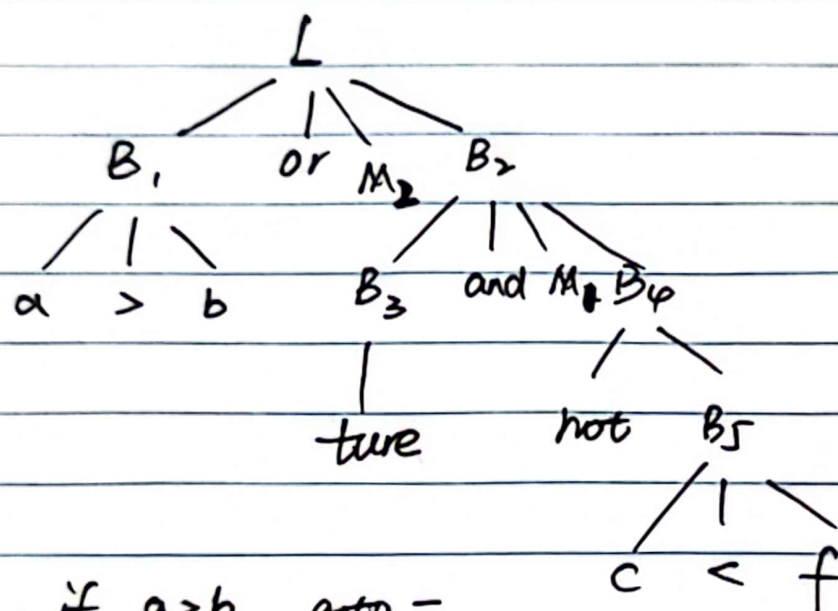 L
B₁ or M₂ B₂
a > b B₃ and M₁ B₄
ture not B₅
c < f
if a>b goto –